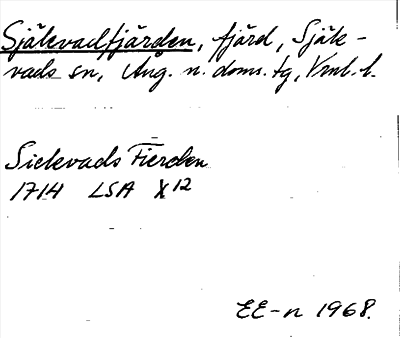 Själevadfjärden, fjärd, Själe-
vads sn, Ång. n. doms. tg, Vrnl. l.
Sielevads Fierden
1714 LSA X12
EE-n 1968.